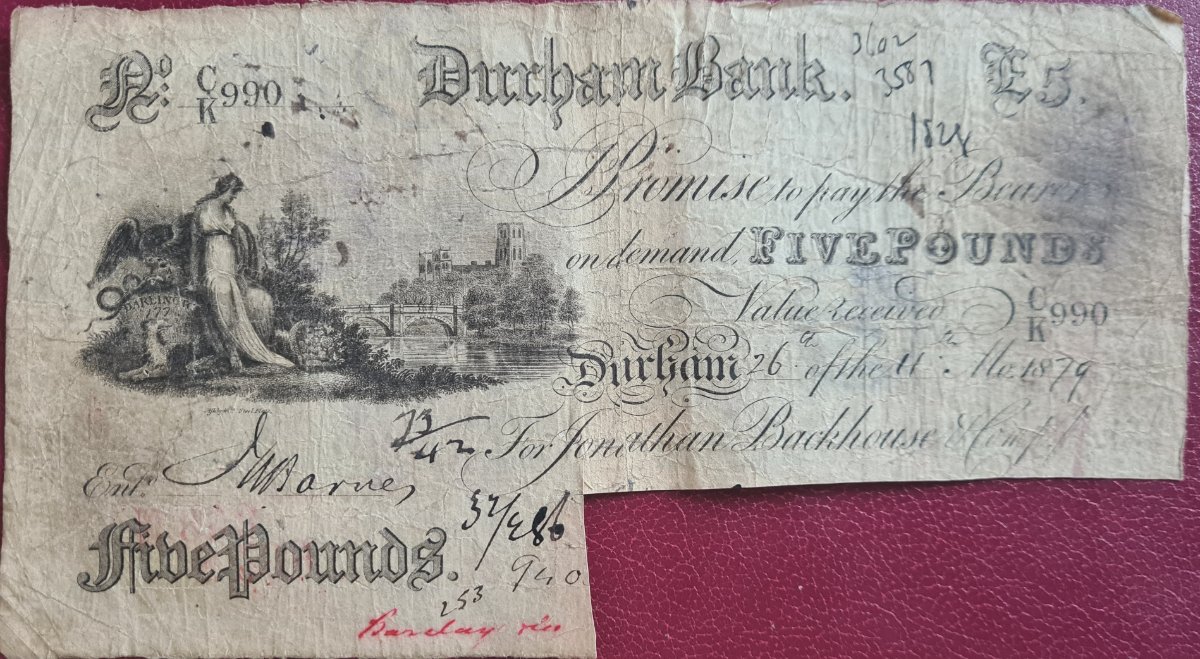 No: C/K 990 Durham Bank. £5.
3602
3587
1824
I Promise to pay the Bearer
on demand, FIVE POUNDS
Value received C/K 990
DARLINGT
177
Durham 26th of the 11th Mo. 1879
73/42
For Jonathan Backhouse & Comp.
Entd. Barnes
Five Pounds.
940
253
Barclay